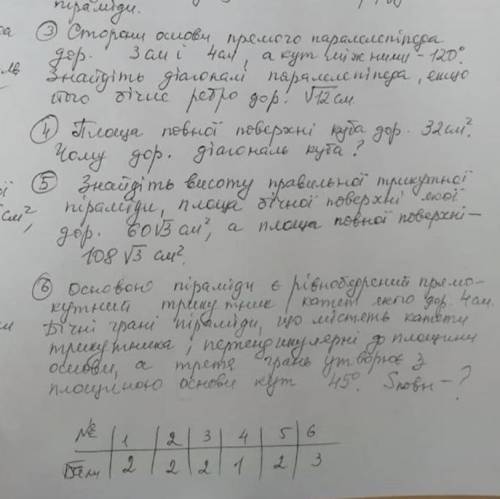 піраміди.
③ Сторони основи прямого паралелепіпеда
дор. 3 см і 4 см, а кут між ними - 120°.
Знайдіть діагоналі паралелепіпеда, якщо
його бічне ребро дор. √12 см
④ Площа повної поверхні куба дор. 32 см².
Чому дор. діагональ куба?
⑤ Знайдіть висоту правильної трикутної
см², піраміди, площа бічної поверхні якої
дор. 60√3 см², а площа повної поверхні -
108√3 см².
⑥ Основою піраміди є рівнобедрений прямо-
кутний трикутник, катет якого дор. 4 см.
Бічні грані піраміди, що містять катети
трикутника, перпендикулярні до площини
основи, а третя грань утворює з
площиною основи кут 45°. Sповн - ?
№ | 1 | 2 | 3 | 4 | 5 | 6
Бали | 2 | 2 | 2 | 1 | 2 | 3